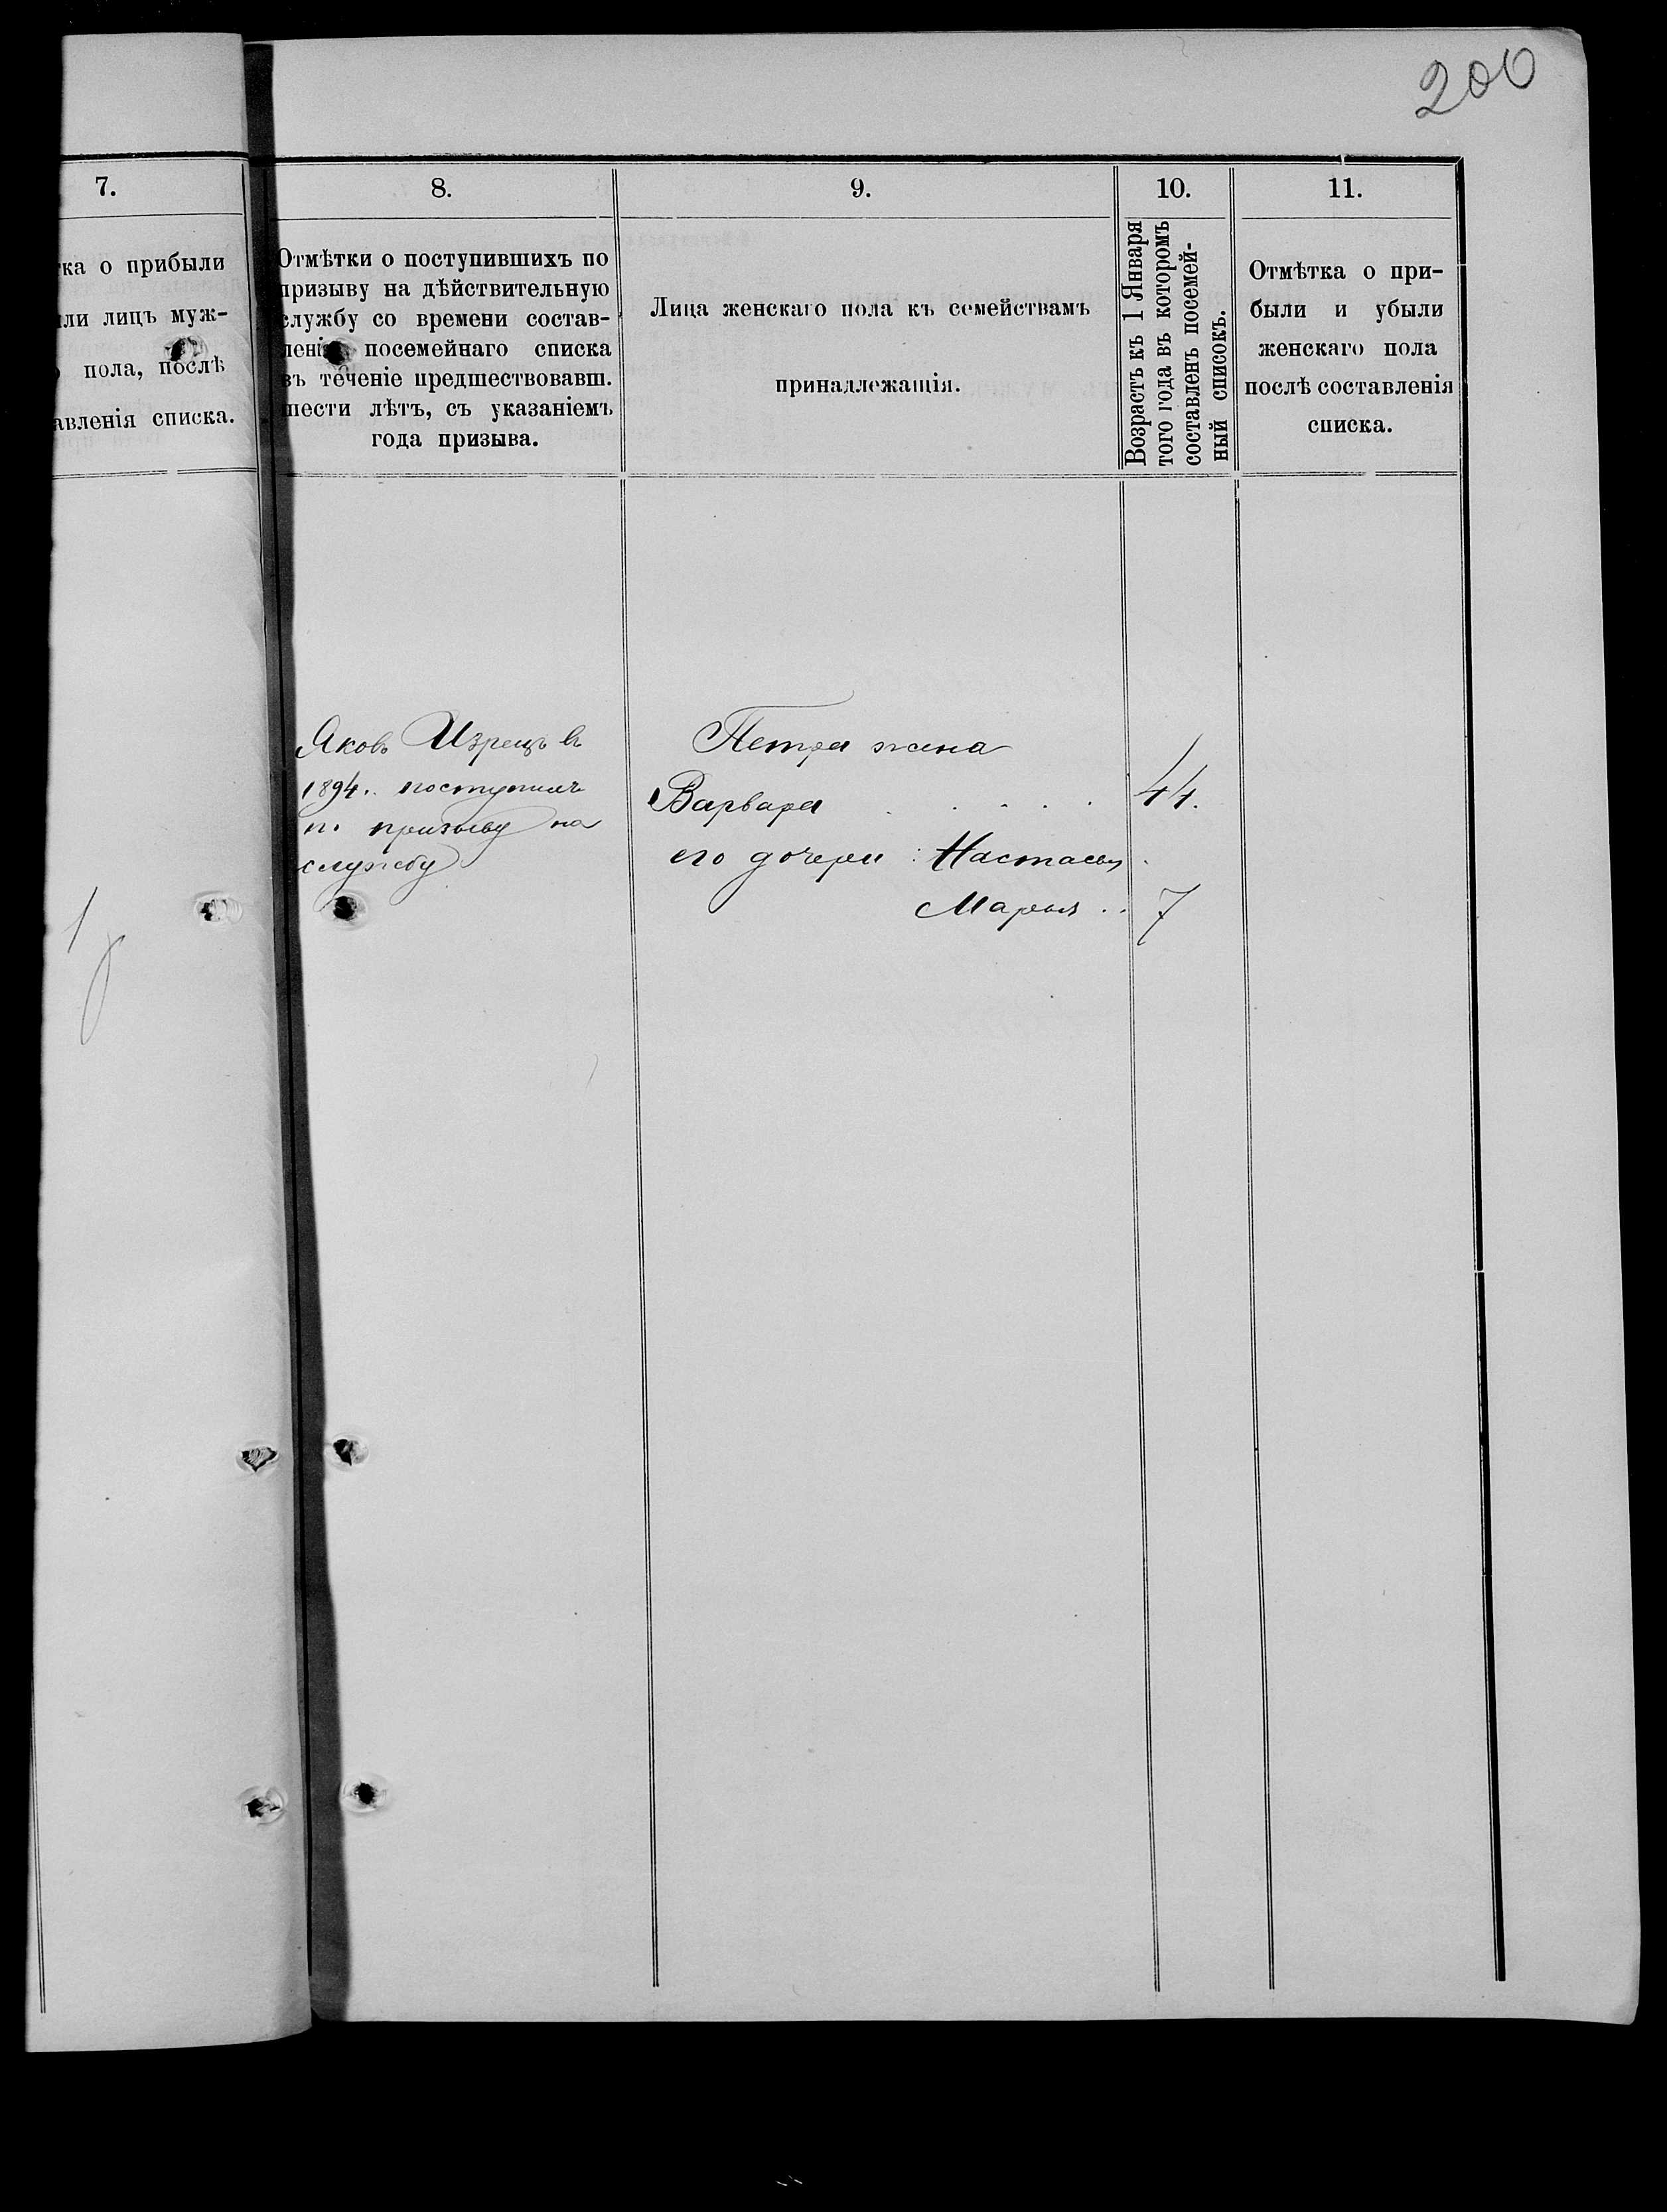 200
7.
8.
9.
10.
11.
тка о прибыли
или лицъ муж-
пола, послѣ
авленія списка.
Отмѣтки о поступившихъ по
призыву на дѣйствительную
службу со времени состав-
ленія посемейнаго списка
въ теченіе предшествовавш.
шести лѣтъ, съ указаніемъ
года призыва.
Лица женскаго пола къ семействамъ
принадлежащія.
Возрастъ къ 1 Января
того года въ которомъ
составленъ посемей-
ный списокъ.
Отмѣтка о при-
были и убыли
женскаго пола
послѣ составленія
списка.
Яковъ въ
1894. поступилъ
по призыву на
службу
Петра жена
Варвара . . . . . 44.
его дочери: Настасья
Марья .. 7